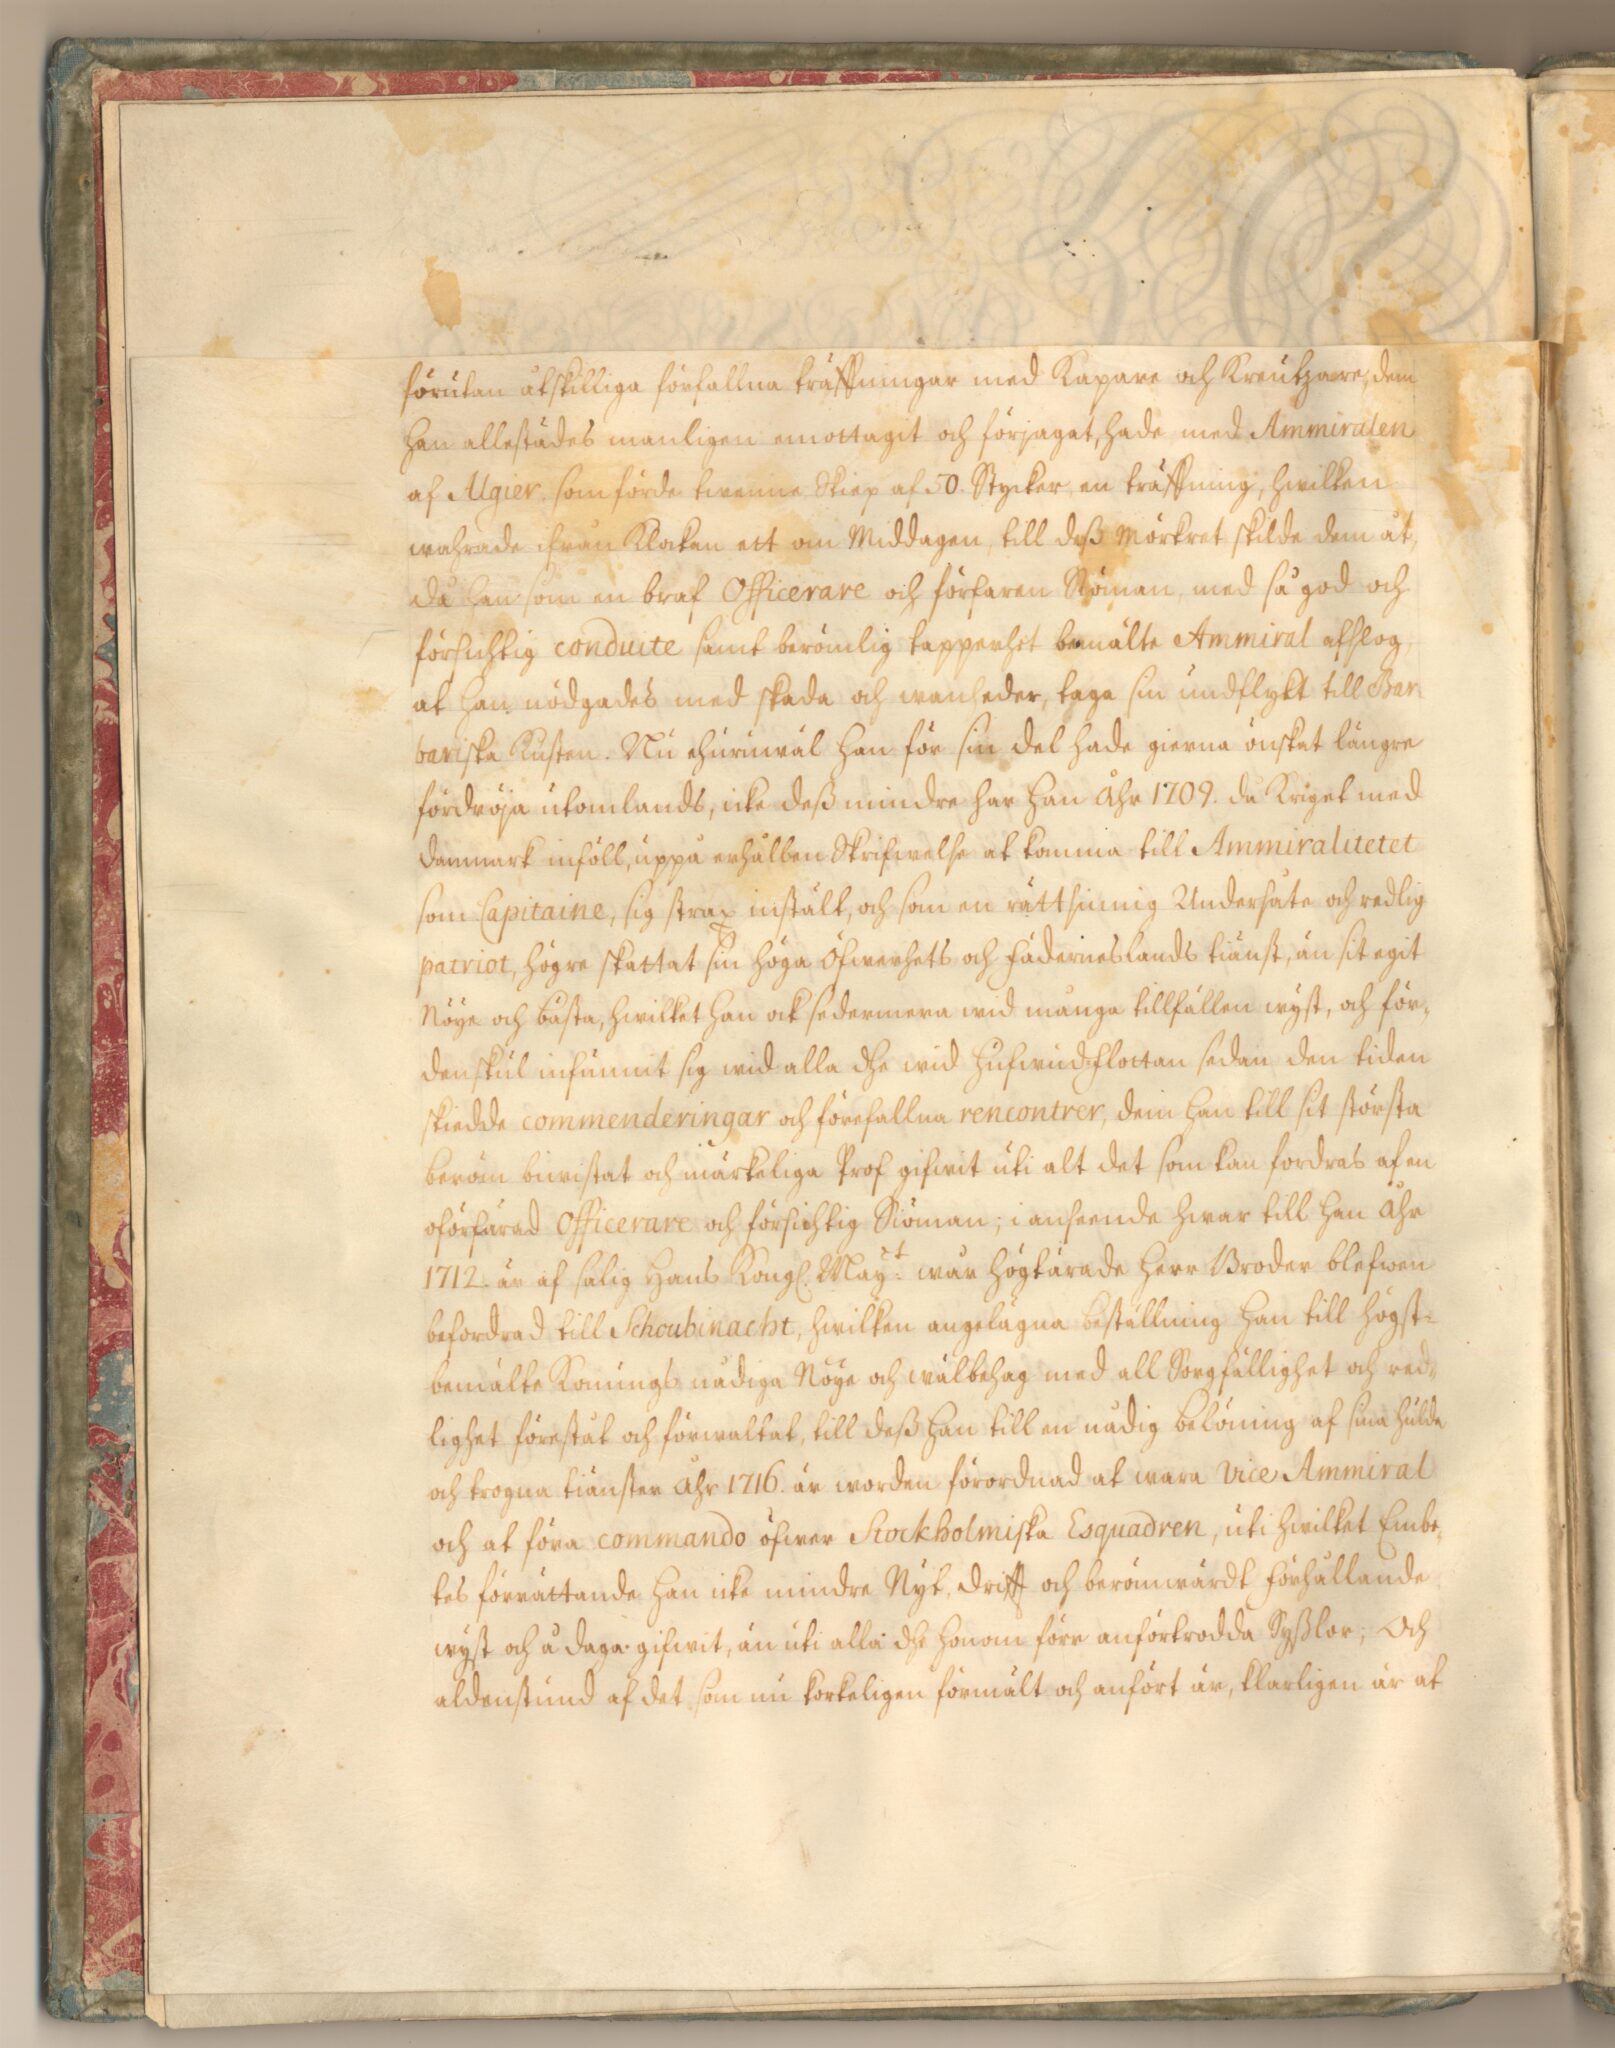 förutan åtskilliga förfallna träffningar med Kapare och Kreutzare, dem
han allestädes manligen emottagit och förjagat, hade med Ammiralen
af Algier som förde tvenne Skiep af 50. Stycker en träffning, hwilken
wahrade ifrån Klockan ett om Middagen, till deß Mörkret skilde dem åt,
då han som en braf Officerare och förfaren Siöman, med så god och
försichtig conduite samt berömlig tapperhet bemälte Ammiral afslog,
at han nödgades med skada och wanheder, taga sin undflykt till Bar-
bariska Kusten. Nu ehuruwäl han för sin del hade gierna önskat längre
fördröja utomlands, icke deß mindre har han Åhr 1709. då Kriget med
Danmark inföll, uppå erhållen Skrifwelse at komma till Ammiralitetet
som Capitaine, sig strax instält, och som en rättsinnig Undersåte och redlig
patriot, högre skattat sin höga Öfwerhets och Fäderneslands tiänst, än sit egit
Nöye och bästa, hwilket han ock sedermera wid många tillfällen wyst, och för-
denskul infunnit sig wid alla dhe wid Hufwudflottan sedan den tiden
skiedde commenderingar och förefallna rencontrer, dem han till sit största
beröm biwistat och märkeliga Prof gifwit uti alt det som kan fordras af en
oförfärad Officerare och försichtig Siöman; i anseende hwar till han Åhr
1712. är af salig Hans Kongl. May:t wår högtärade Herr Broder blefwen
befordrad till Schoubinacht, hwilken angelägna beställning han till högst-
bemälte Konungs nådiga Nöye och wälbehag med all Sorgfällighet och red-
lighet föreståt och förwaltat, till deß han till en nådig belöning af sina hulda
och trogna tiänster Åhr 1716. är worden förordnad at wara Vice Ammiral
och at föra commando öfwer Stockholmiska Esquadren, uti hwilket Embe-
tes förrättande han icke mindre Nyt, drifft och berömwärdt förhållande
wyst och å daga gifwit, än uti alla dhe honom förr anförtrodda Syßlor; Och
aldenstund af det som nu korteligen förmält och anfört är, klarligen är at